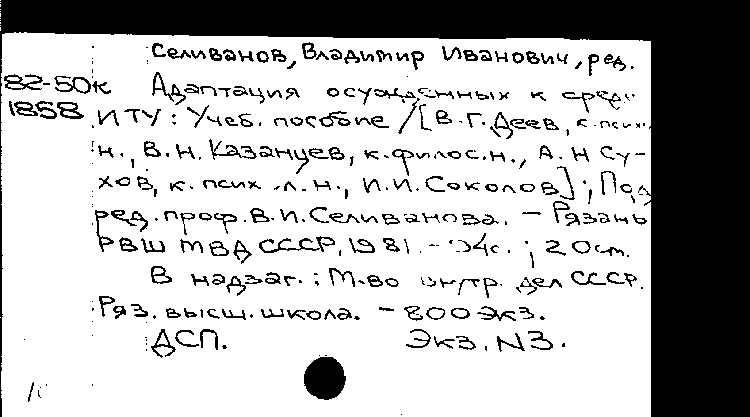 Селиванов, Владимир Иванович, ред.
82-50к Адаптация осужденных к среде
1858 ИТУ: Учеб. пособие / [В.Г. Деев, к. псих.
н., В.Н. Казанцев, к. филос. н., А.Н Су-
хов, к. псих .л. н., И.И. Соколов]; Под
ред. проф. В.И. Селиванова. - Рязань
РВШ МВД СССР, 1981. - 94с.; 20см.
В надзаг.: М-во внутр. дел СССР.
Ряз. высш. школа. - 800 экз.
ДСП. Экз. N3.